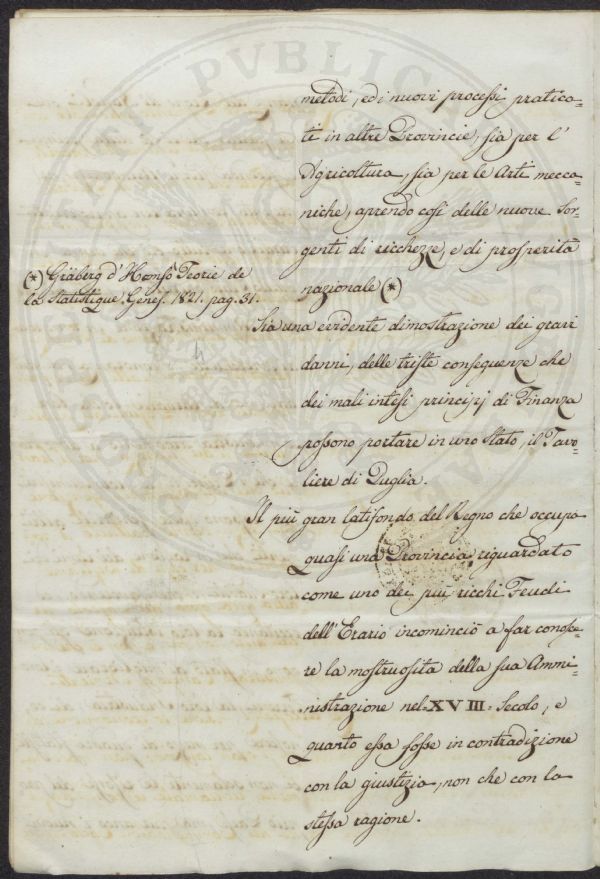 metodi, ed i nuovi processi pratica-
ti in altre Provincie, sia per l'
Agricoltura, sia per le Arti mecca-
niche, aprendo così delle nuove Sor-
genti di ricchezze, e di prosperità
nazionale (*)
(*) Gräberg d'Hemsö Teorie de
la statistique. Genes. 1821. pag. 51.
Sia una evidente dimostrazione dei gravi
danni, delle triste conseguenze che
dei mali intesi principj di Finanza
possono portare in uno Stato, il Tavo-
liere di Puglia.
Il più gran latifondo del Regno che occupa
quasi una Provincia, riguardato
come uno dei più ricchi Feudi
dell'Erario incominciò a far conosce-
re la mostruosità della sua Ammi-
nistrazione nel XVIII Secolo, e
quanto essa fosse in contradizione
con la giustizia, non che con la
stessa ragione.